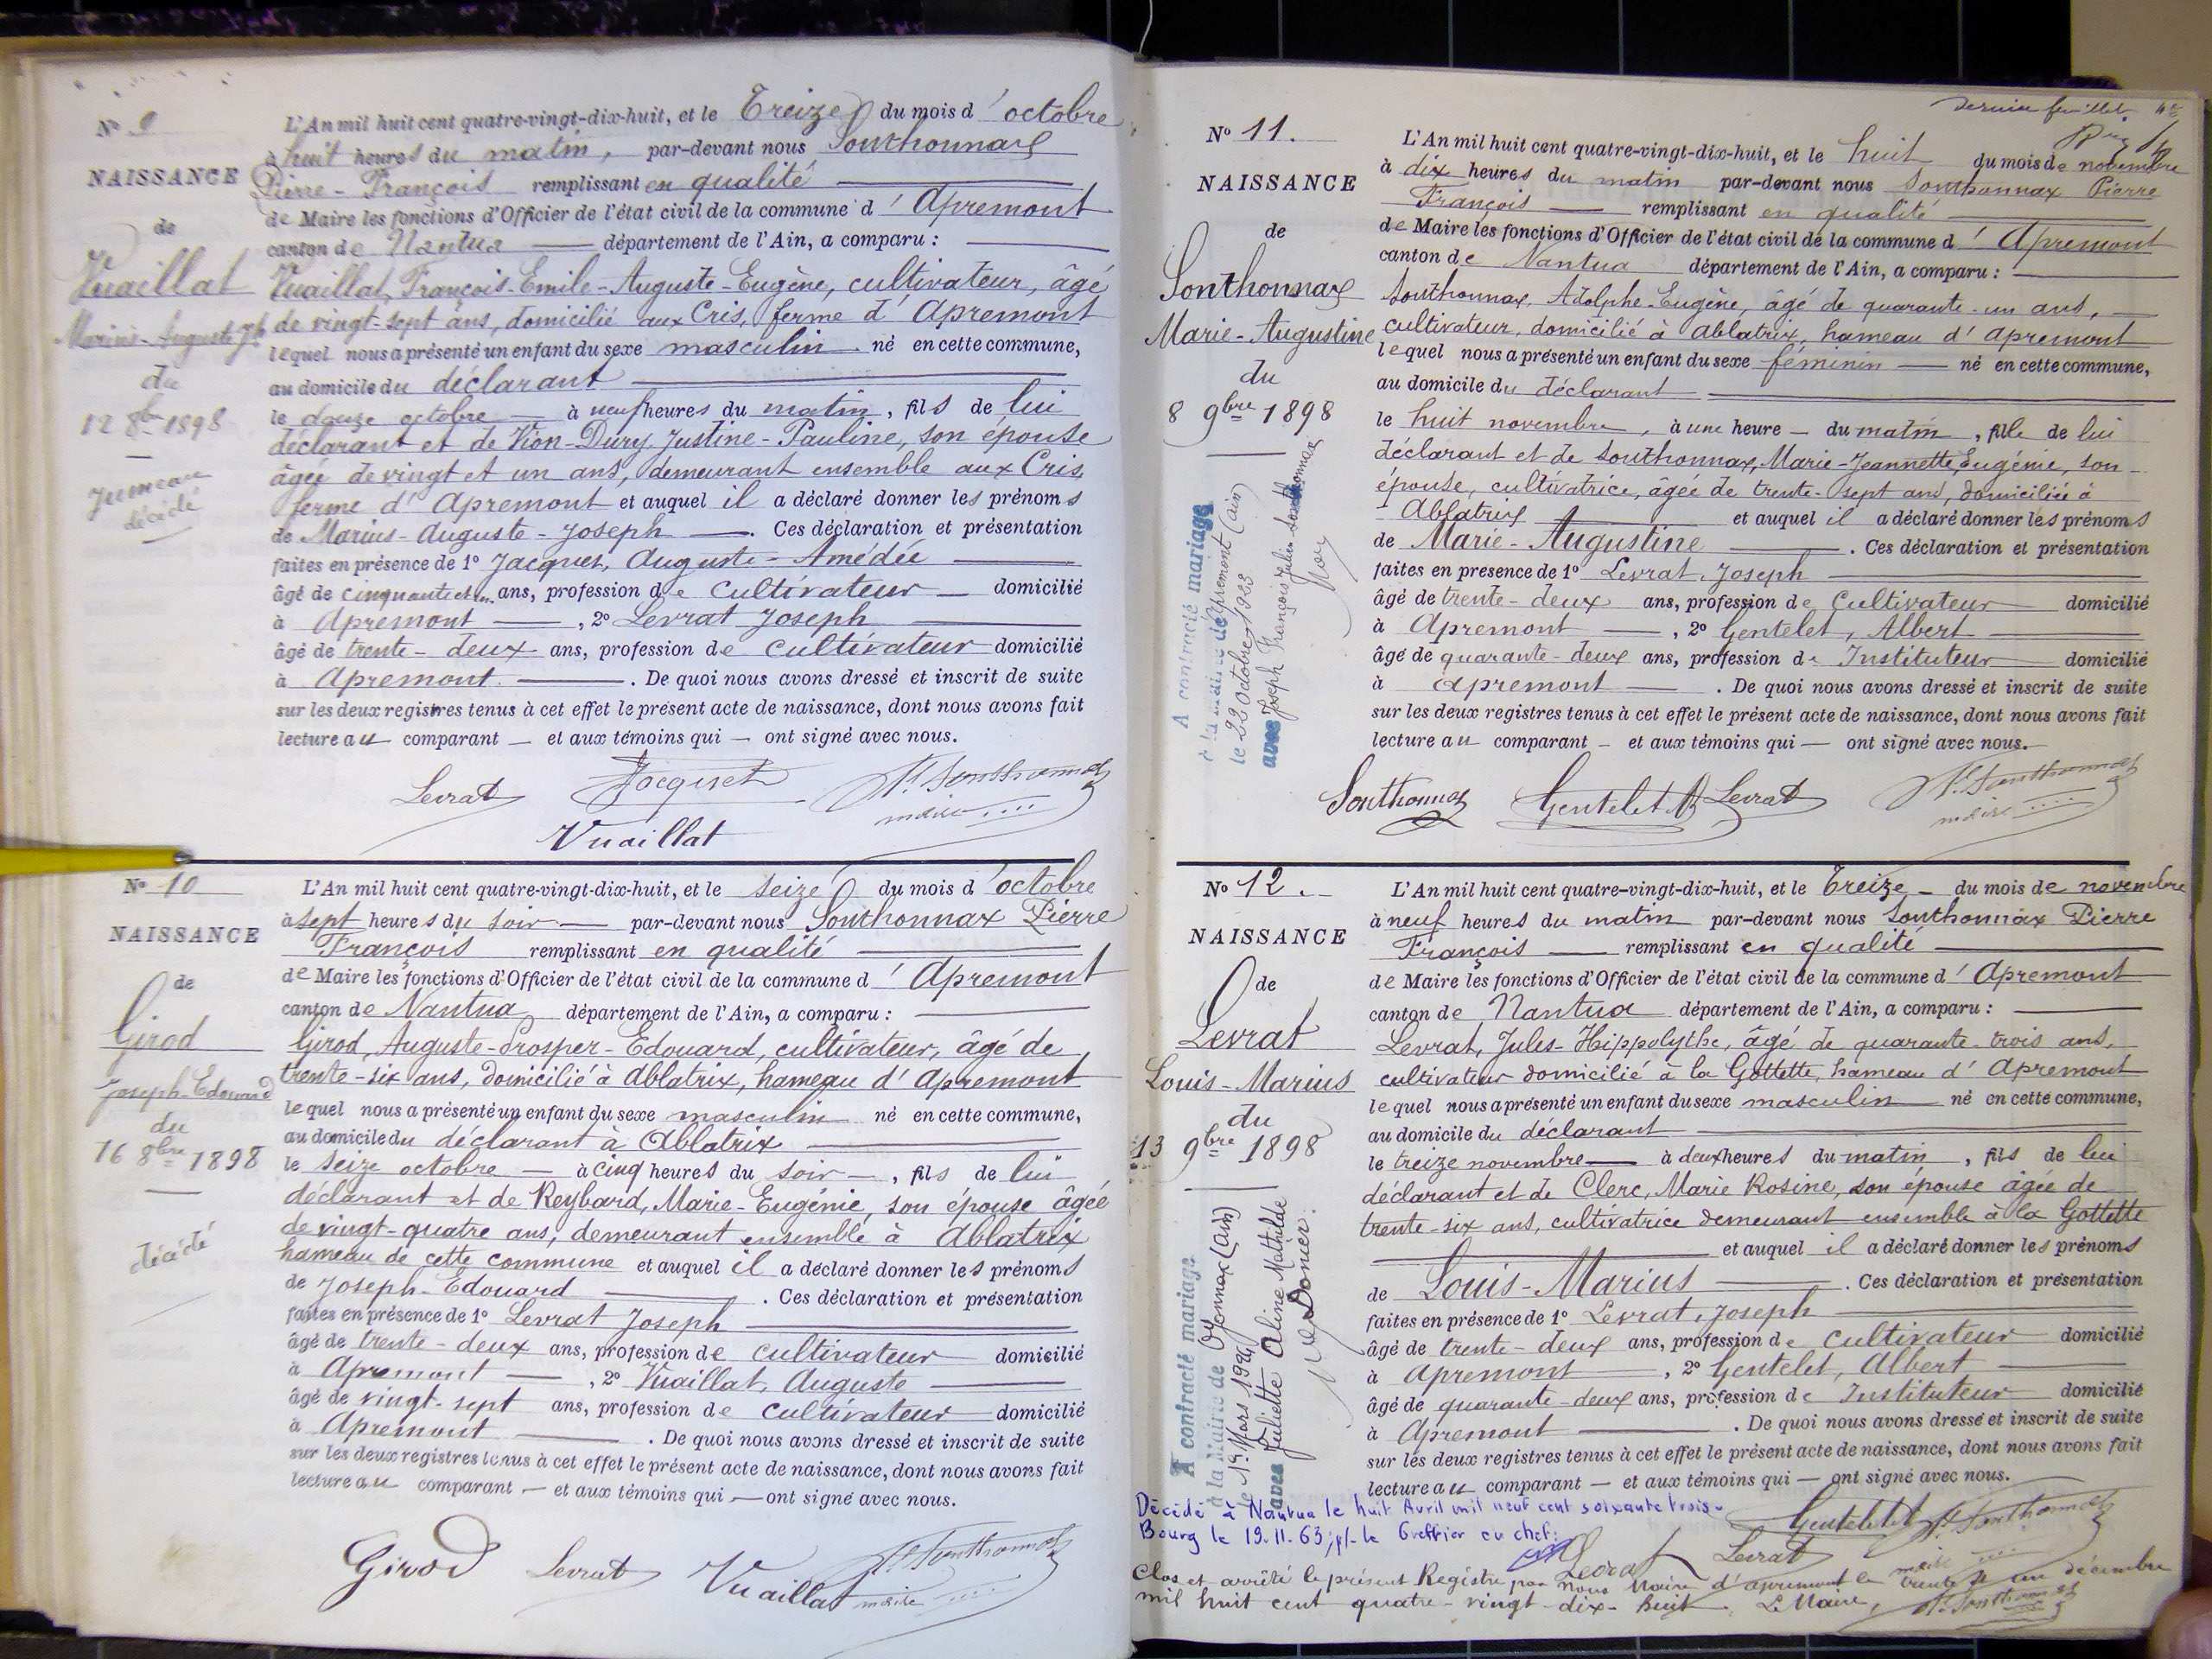 N° 9
NAISSANCE
de
Vuaillat
Marius-Auguste-Jh
du
12 8bre 1898
Jumeau
décédé
L'An mil huit cent quatre-vingt-dix-huit, et le Treize du mois d'octobre
à huit heures du matin, par-devant nous Sonthonnax
Pierre-François remplissant en qualité
de Maire les fonctions d'Officier de l'état civil de la commune d'Apremont
canton de Nantua département de l'Ain, a comparu :
Vuaillat, François-Emile-Auguste-Eugène, cultivateur, âgé
de vingt-sept ans, domicilié aux Cris, ferme d'Apremont
lequel nous a présenté un enfant du sexe masculin né en cette commune,
au domicile du déclarant
le douze octobre à neuf heures du matin, fils de lui
déclarant et de Vion-Dury, Justine-Pauline, son épouse
âgée de vingt et un ans, demeurant ensemble aux Cris,
ferme d'Apremont et auquel il a déclaré donner les prénoms
de Marius-Auguste-Joseph. Ces déclaration et présentation
faites en présence de 1° Jacquet, Auguste-Amédée
âgé de cinquante et un ans, profession de cultivateur domicilié
à Apremont, 2° Levrat Joseph
âgé de trente-deux ans, profession de cultivateur domicilié
à Apremont. De quoi nous avons dressé et inscrit de suite
sur les deux registres tenus à cet effet le présent acte de naissance, dont nous avons fait
lecture au comparant et aux témoins qui ont signé avec nous.
Levrat Jacquet Sonthonnax
maire
Vuaillat
N° 10
NAISSANCE
de
Girod
Joseph-Edouard
du
16 8bre 1898
décédé
L'An mil huit cent quatre-vingt-dix-huit, et le seize du mois d'octobre
à sept heures du soir par-devant nous Sonthonnax Pierre
François remplissant en qualité
de Maire les fonctions d'Officier de l'état civil de la commune d'Apremont
canton de Nantua département de l'Ain, a comparu :
Girod, Auguste-Prosper-Edouard, cultivateur, âgé de
trente-six ans, domicilié à Ablatrix, hameau d'Apremont
lequel nous a présenté un enfant du sexe masculin né en cette commune,
au domicile du déclarant à Ablatrix
le seize octobre à cinq heures du soir, fils de lui
déclarant et de Reybard, Marie-Eugénie, son épouse âgée
de vingt-quatre ans, demeurant ensemble à Ablatrix
hameau de cette commune et auquel il a déclaré donner les prénoms
de Joseph-Edouard. Ces déclaration et présentation
faites en présence de 1° Levrat Joseph
âgé de trente-deux ans, profession de cultivateur domicilié
à Apremont, 2° Vuaillat, Auguste
âgé de vingt-sept ans, profession de cultivateur domicilié
à Apremont. De quoi nous avons dressé et inscrit de suite
sur les deux registres tenus à cet effet le présent acte de naissance, dont nous avons fait
lecture au comparant et aux témoins qui ont signé avec nous.
Girod Levrat Vuaillat Sonthonnax
maire
dernier feuillet
N° 11.
NAISSANCE
de
Sonthonnax
Marie-Augustine
du
8 9bre 1898
A contracté mariage
à la mairie de Apremont (ain)
le 22 octobre 1923
avec Joseph François Julien Sonthonnax
L'An mil huit cent quatre-vingt-dix-huit, et le huit du mois de novembre
à dix heures du matin par-devant nous Sonthonnax Pierre
François remplissant en qualité
de Maire les fonctions d'Officier de l'état civil de la commune d'Apremont
canton de Nantua département de l'Ain, a comparu :
Sonthonnax, Adolphe-Eugène, âgé de quarante-un ans,
cultivateur, domicilié à Ablatrix, hameau d'Apremont
lequel nous a présenté un enfant du sexe féminin né en cette commune,
au domicile du déclarant
le huit novembre, à une heure du matin, fille de lui
déclarant et de Sonthonnax, Marie-Jeannette, Eugénie, son
épouse, cultivatrice, âgée de trente-sept ans, domiciliée à
Ablatrix et auquel il a déclaré donner les prénoms
de Marie-Augustine. Ces déclaration et présentation
faites en présence de 1° Levrat, Joseph
âgé de trente-deux ans, profession de cultivateur domicilié
à Apremont, 2° Gentelet, Albert
âgé de quarante-deux ans, profession de Instituteur domicilié
à Apremont. De quoi nous avons dressé et inscrit de suite
sur les deux registres tenus à cet effet le présent acte de naissance, dont nous avons fait
lecture au comparant et aux témoins qui ont signé avec nous.
Sonthonnax Gentelet A Levrat Sonthonnax
maire
N° 12.
NAISSANCE
de
Levrat
Louis-Marius
du
13 9bre 1898
A contracté mariage
à la Mairie de Oyonnax (ain)
le 1er Mars 1924
avec Juliette Aline Mathilde
L'An mil huit cent quatre-vingt-dix-huit, et le Treize du mois de novembre
à neuf heures du matin par-devant nous Sonthonnax Pierre
François remplissant en qualité
de Maire les fonctions d'Officier de l'état civil de la commune d'Apremont
canton de Nantua département de l'Ain, a comparu :
Levrat, Jules-Hippolythe, âgé de quarante-trois ans,
cultivateur domicilié à la Gottette, hameau d'Apremont
lequel nous a présenté un enfant du sexe masculin né en cette commune,
au domicile du déclarant
le treize novembre à deux heures du matin, fils de lui
déclarant et de Clerc, Marie Rosine, son épouse âgée de
trente-six ans, cultivatrice demeurant ensemble à la Gottette
et auquel il a déclaré donner les prénoms
de Louis-Marius. Ces déclaration et présentation
faites en présence de 1° Levrat, Joseph
âgé de trente-deux ans, profession de cultivateur domicilié
à Apremont, 2° Gentelet, Albert
âgé de quarante-deux ans, profession de Instituteur domicilié
à Apremont. De quoi nous avons dressé et inscrit de suite
sur les deux registres tenus à cet effet le présent acte de naissance, dont nous avons fait
lecture au comparant et aux témoins qui ont signé avec nous.
Décédé à Nantua le huit Avril mil neuf cent soixante trois.
Bourg le 19.11.63, pr. le Greffier en chef:
Gentelet A Sonthonnax
Levrat Levrat maire
Clos et arrêté le présent Registre par nous Maire d'apremont le trente et un décembre
mil huit cent quatre-vingt-dix-huit. Le Maire, Sonthonnax